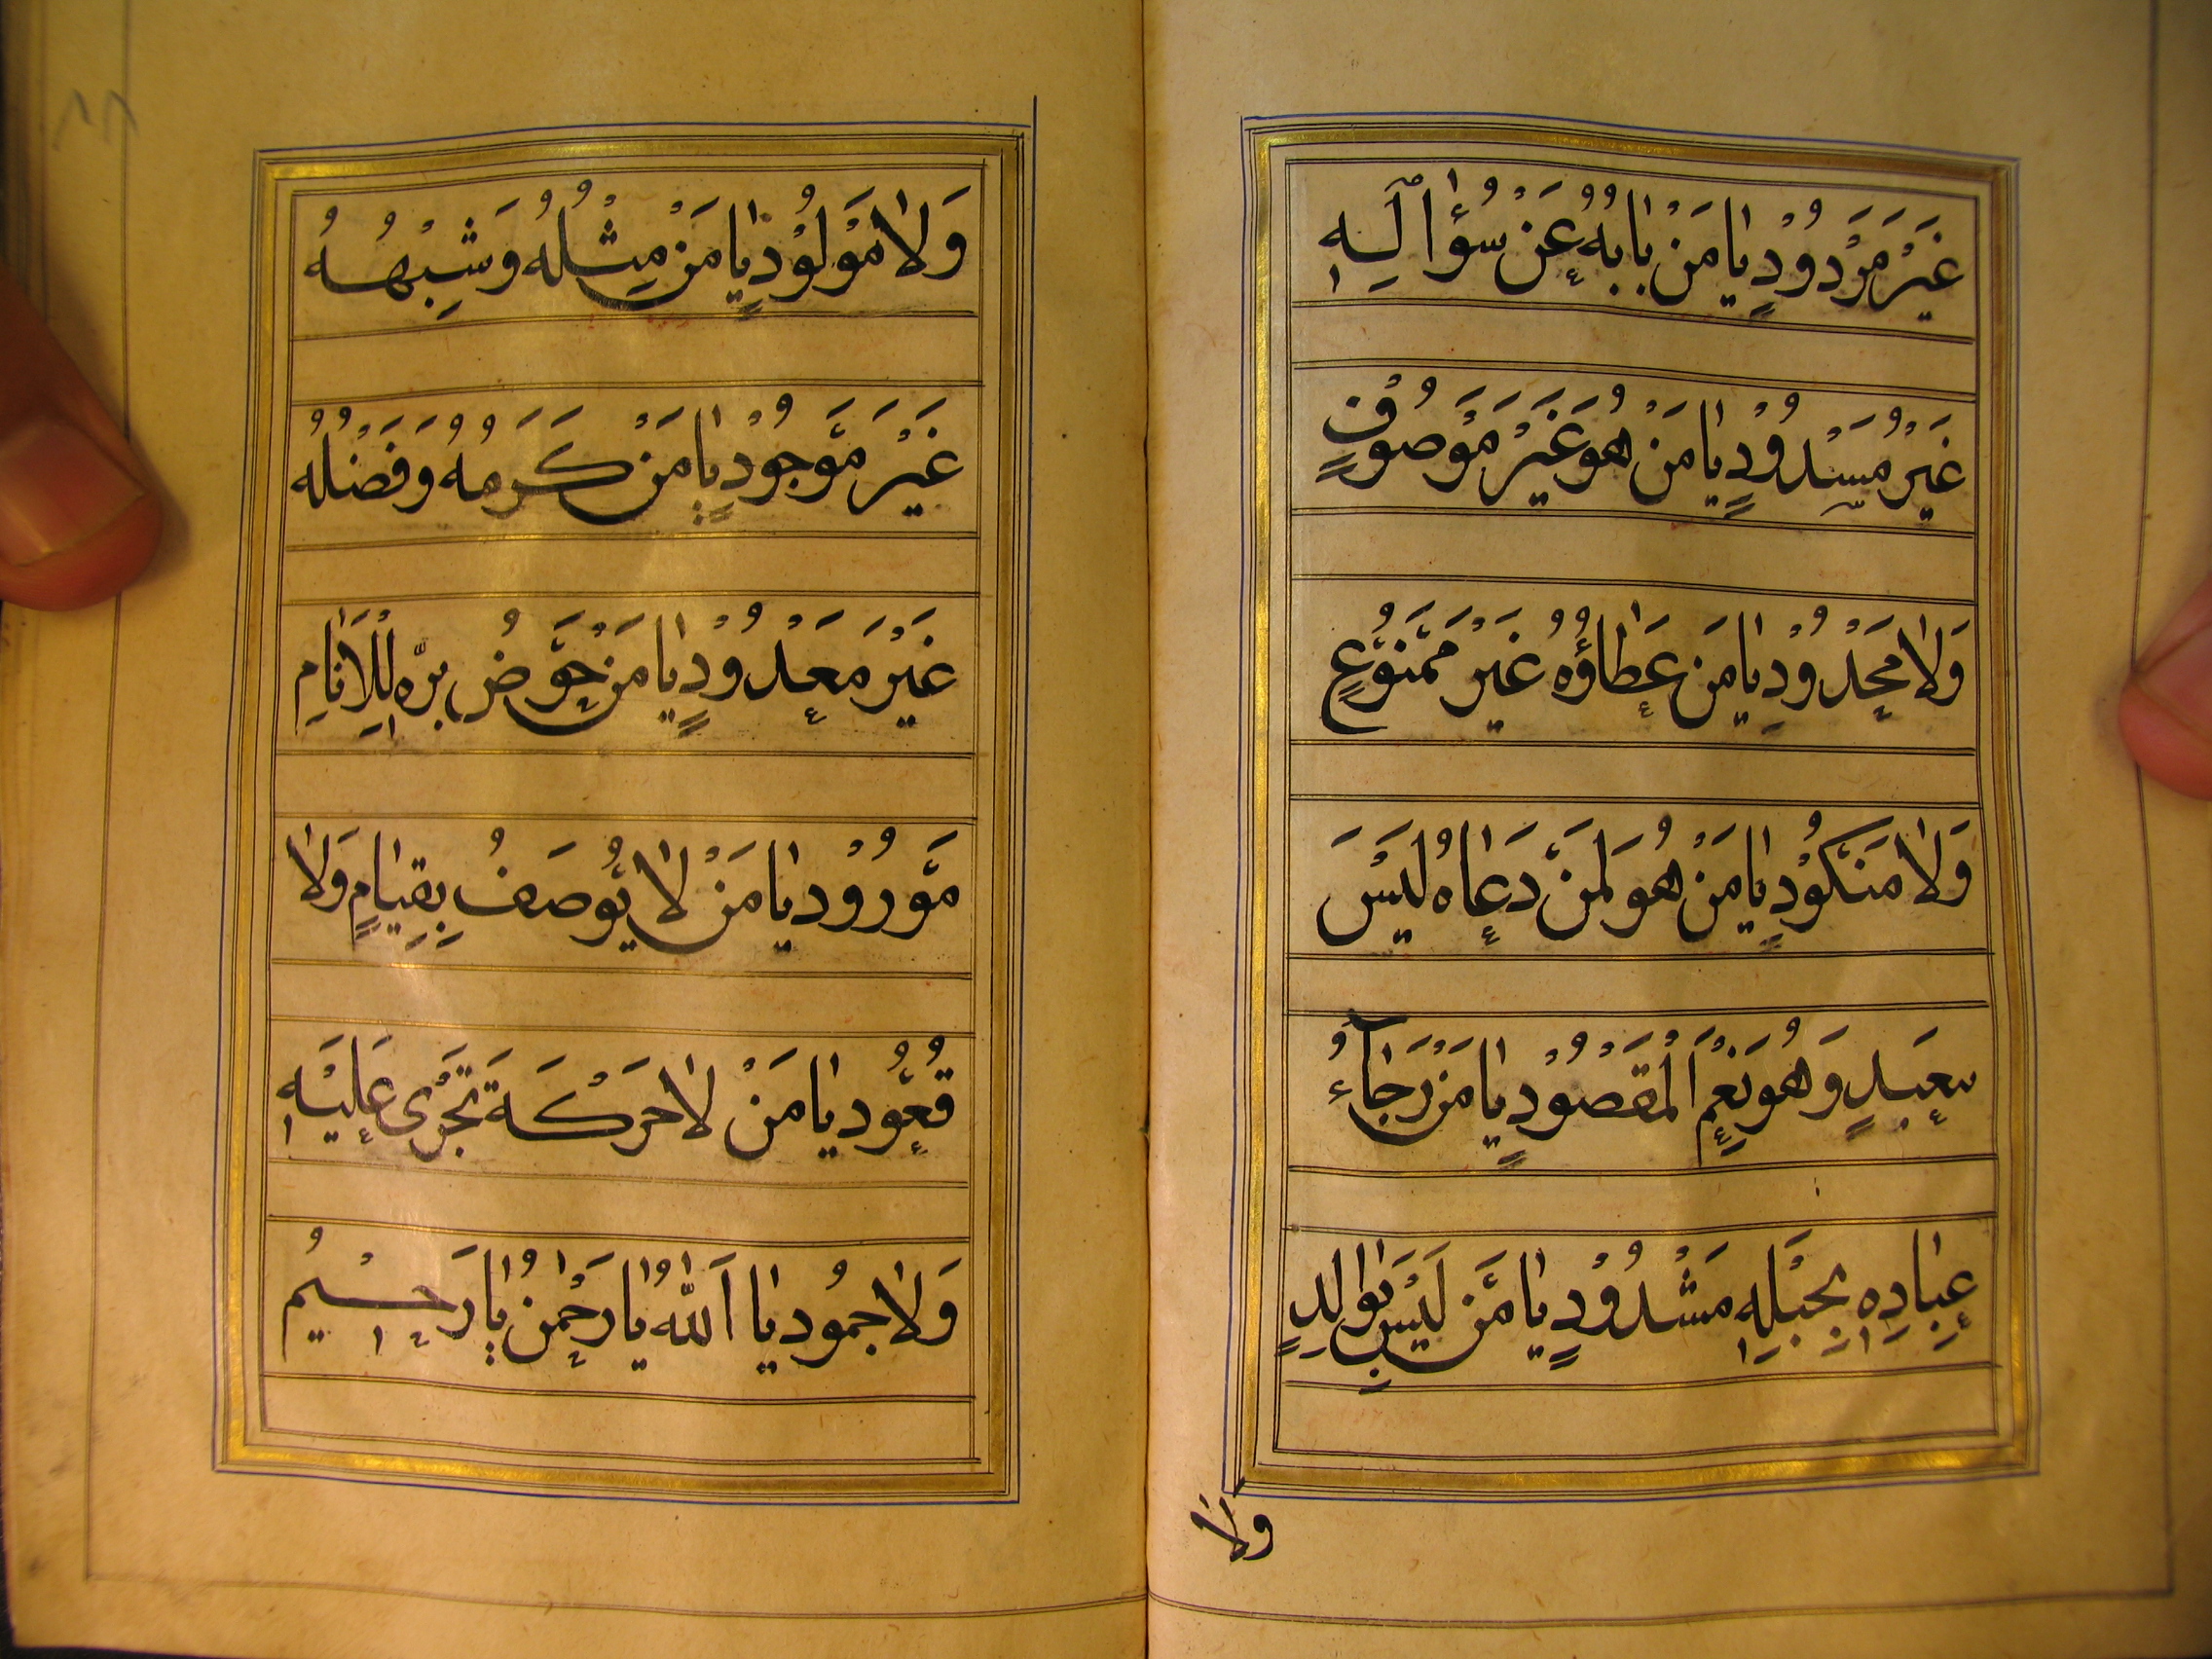 غَيْرَ مَرْدُوْدٍ يَا مَنْ بَابُهُ عَنْ سُؤَالِهِ
غَيْرُ مَسْدُوْدٍ يَا مَنْ هُوَ غَيْرُ مَوْصُوْفٍ
وَلَا مَحْدُوْدٍ يَا مَن عَطَاؤُهُ غَيْرُ مَمْنُوْعٍ
وَلَا مَنْكُوْدٍ يَا مَنْ هُوَ لِمَنْ دَعَاهُ لَيْسَ
بِبَعِيْدٍ وَهُوَ نِعْمَ الْمَقْصُوْدِ يَا مَنْ رَجَآءُ
عِبَادِهِ بِحَبْلِهِ مَشْدُوْدٍ يَا مَن لَيْسَ بِوَالِدٍ
وَلَا
وَلَا مَوْلُوْدٍ يَا مَنْ مِثْلُهُ وَشِبْهُهُ
غَيْرَ مَوْجُوْدٍ يَا مَنْ كَرَمُهُ وَفَضْلُهُ
غَيْرَ مَعْدُوْدٍ يَا مَنْ حَوْضُ بِرِّهِ لِلْاَنَامِ
مَوْرُوْد يَا مَنْ لَا يُوْصَفُ بِقِيَامٍ وَلَا
قُعُوْد يَا مَنْ لَا حَرَكَةَ تَجْرِى عَلَيْهِ
وَلَا جمُود يَا اَللّٰهُ يَا رَحْمٰنُ يَا رَحِيْمُ
٨٨